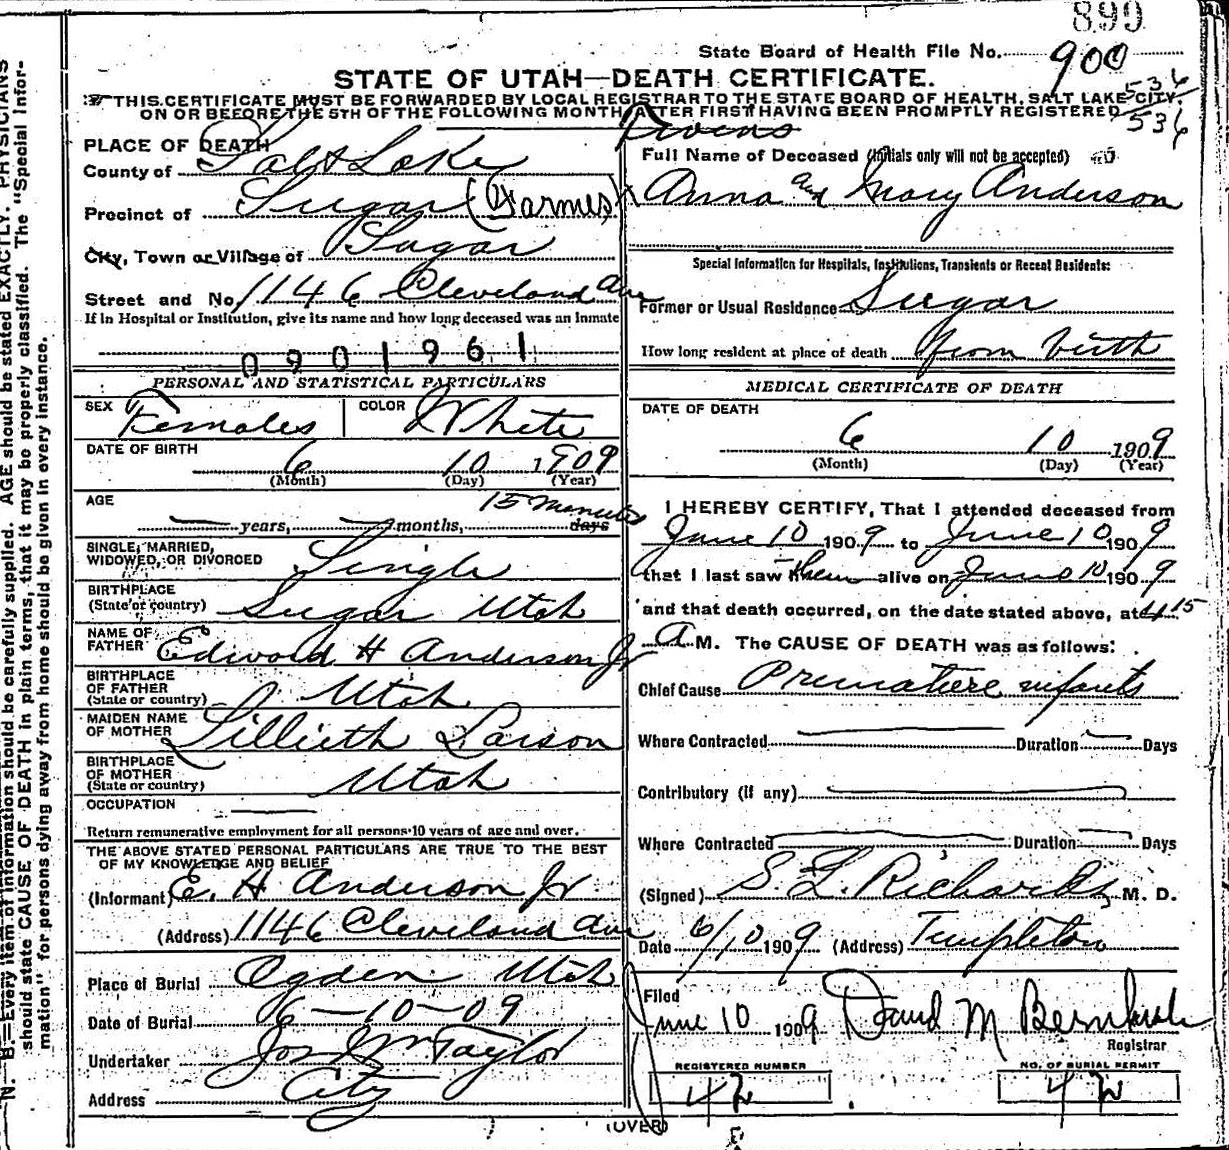 899
State Board of Health File No. 900
STATE OF UTAH—DEATH CERTIFICATE.
536
THIS CERTIFICATE MUST BE FORWARDED BY LOCAL REGISTRAR TO THE STATE BOARD OF HEALTH, SALT LAKE CITY,
ON OR BEFORE THE 5TH OF THE FOLLOWING MONTH AFTER FIRST HAVING BEEN PROMPTLY REGISTERED
536
PLACE OF DEATH
County of Salt Lake
Precinct of Sugar (Farmers)
City, Town or Village of Sugar
Street and No. 1146 Cleveland Ave
If in Hospital or Institution, give its name and how long deceased was an Inmate
0901961
PERSONAL AND STATISTICAL PARTICULARS
SEX Females COLOR White
DATE OF BIRTH
6 10 1909
(Month) (Day) (Year)
AGE 15 minutes
— years, — months, days
SINGLE, MARRIED,
WIDOWED, OR DIVORCED Single
BIRTHPLACE
(State or country) Sugar Utah
NAME OF
FATHER Edward H Anderson Jr
BIRTHPLACE
OF FATHER
(State or country) Utah
MAIDEN NAME
OF MOTHER Lillieth Larson
BIRTHPLACE
OF MOTHER
(State or country) Utah
OCCUPATION —
Return remunerative employment for all persons 10 years of age and over.
THE ABOVE STATED PERSONAL PARTICULARS ARE TRUE TO THE BEST
OF MY KNOWLEDGE AND BELIEF
(Informant) E. H. Anderson Jr
(Address) 1146 Cleveland Ave
Place of Burial Ogden Utah
Date of Burial 6-10-09
Undertaker Jos Wm Taylor
Address City
Twins
Full Name of Deceased (Initials only will not be accepted)
Anna and Mary Anderson
Special Information for Hospitals, Institutions, Transients or Recent Residents:
Former or Usual Residence Sugar
How long resident at place of death from birth
MEDICAL CERTIFICATE OF DEATH
DATE OF DEATH
6 10 1909
(Month) (Day) (Year)
I HEREBY CERTIFY, That I attended deceased from
June 10 1909 to June 10 1909
that I last saw them alive on June 10 1909
and that death occurred, on the date stated above, at 4.15
A M. The CAUSE OF DEATH was as follows:
Chief Cause Premature infants
Where Contracted — Duration — Days
Contributory (if any) —
Where Contracted — Duration — Days
(Signed) S. L. Richards, M. D.
Date 6/10 1909 (Address) Templeton
Filed
June 10 1909 David M
Registrar
REGISTERED NUMBER NO. OF BURIAL PERMIT
42 42
(OVER)
N. B.—Every item of information should be carefully supplied. AGE should be stated EXACTLY. PHYSICIANS
should state CAUSE OF DEATH in plain terms, that it may be properly classified. The "Special Infor-
mation" for persons dying away from home should be given in every instance.